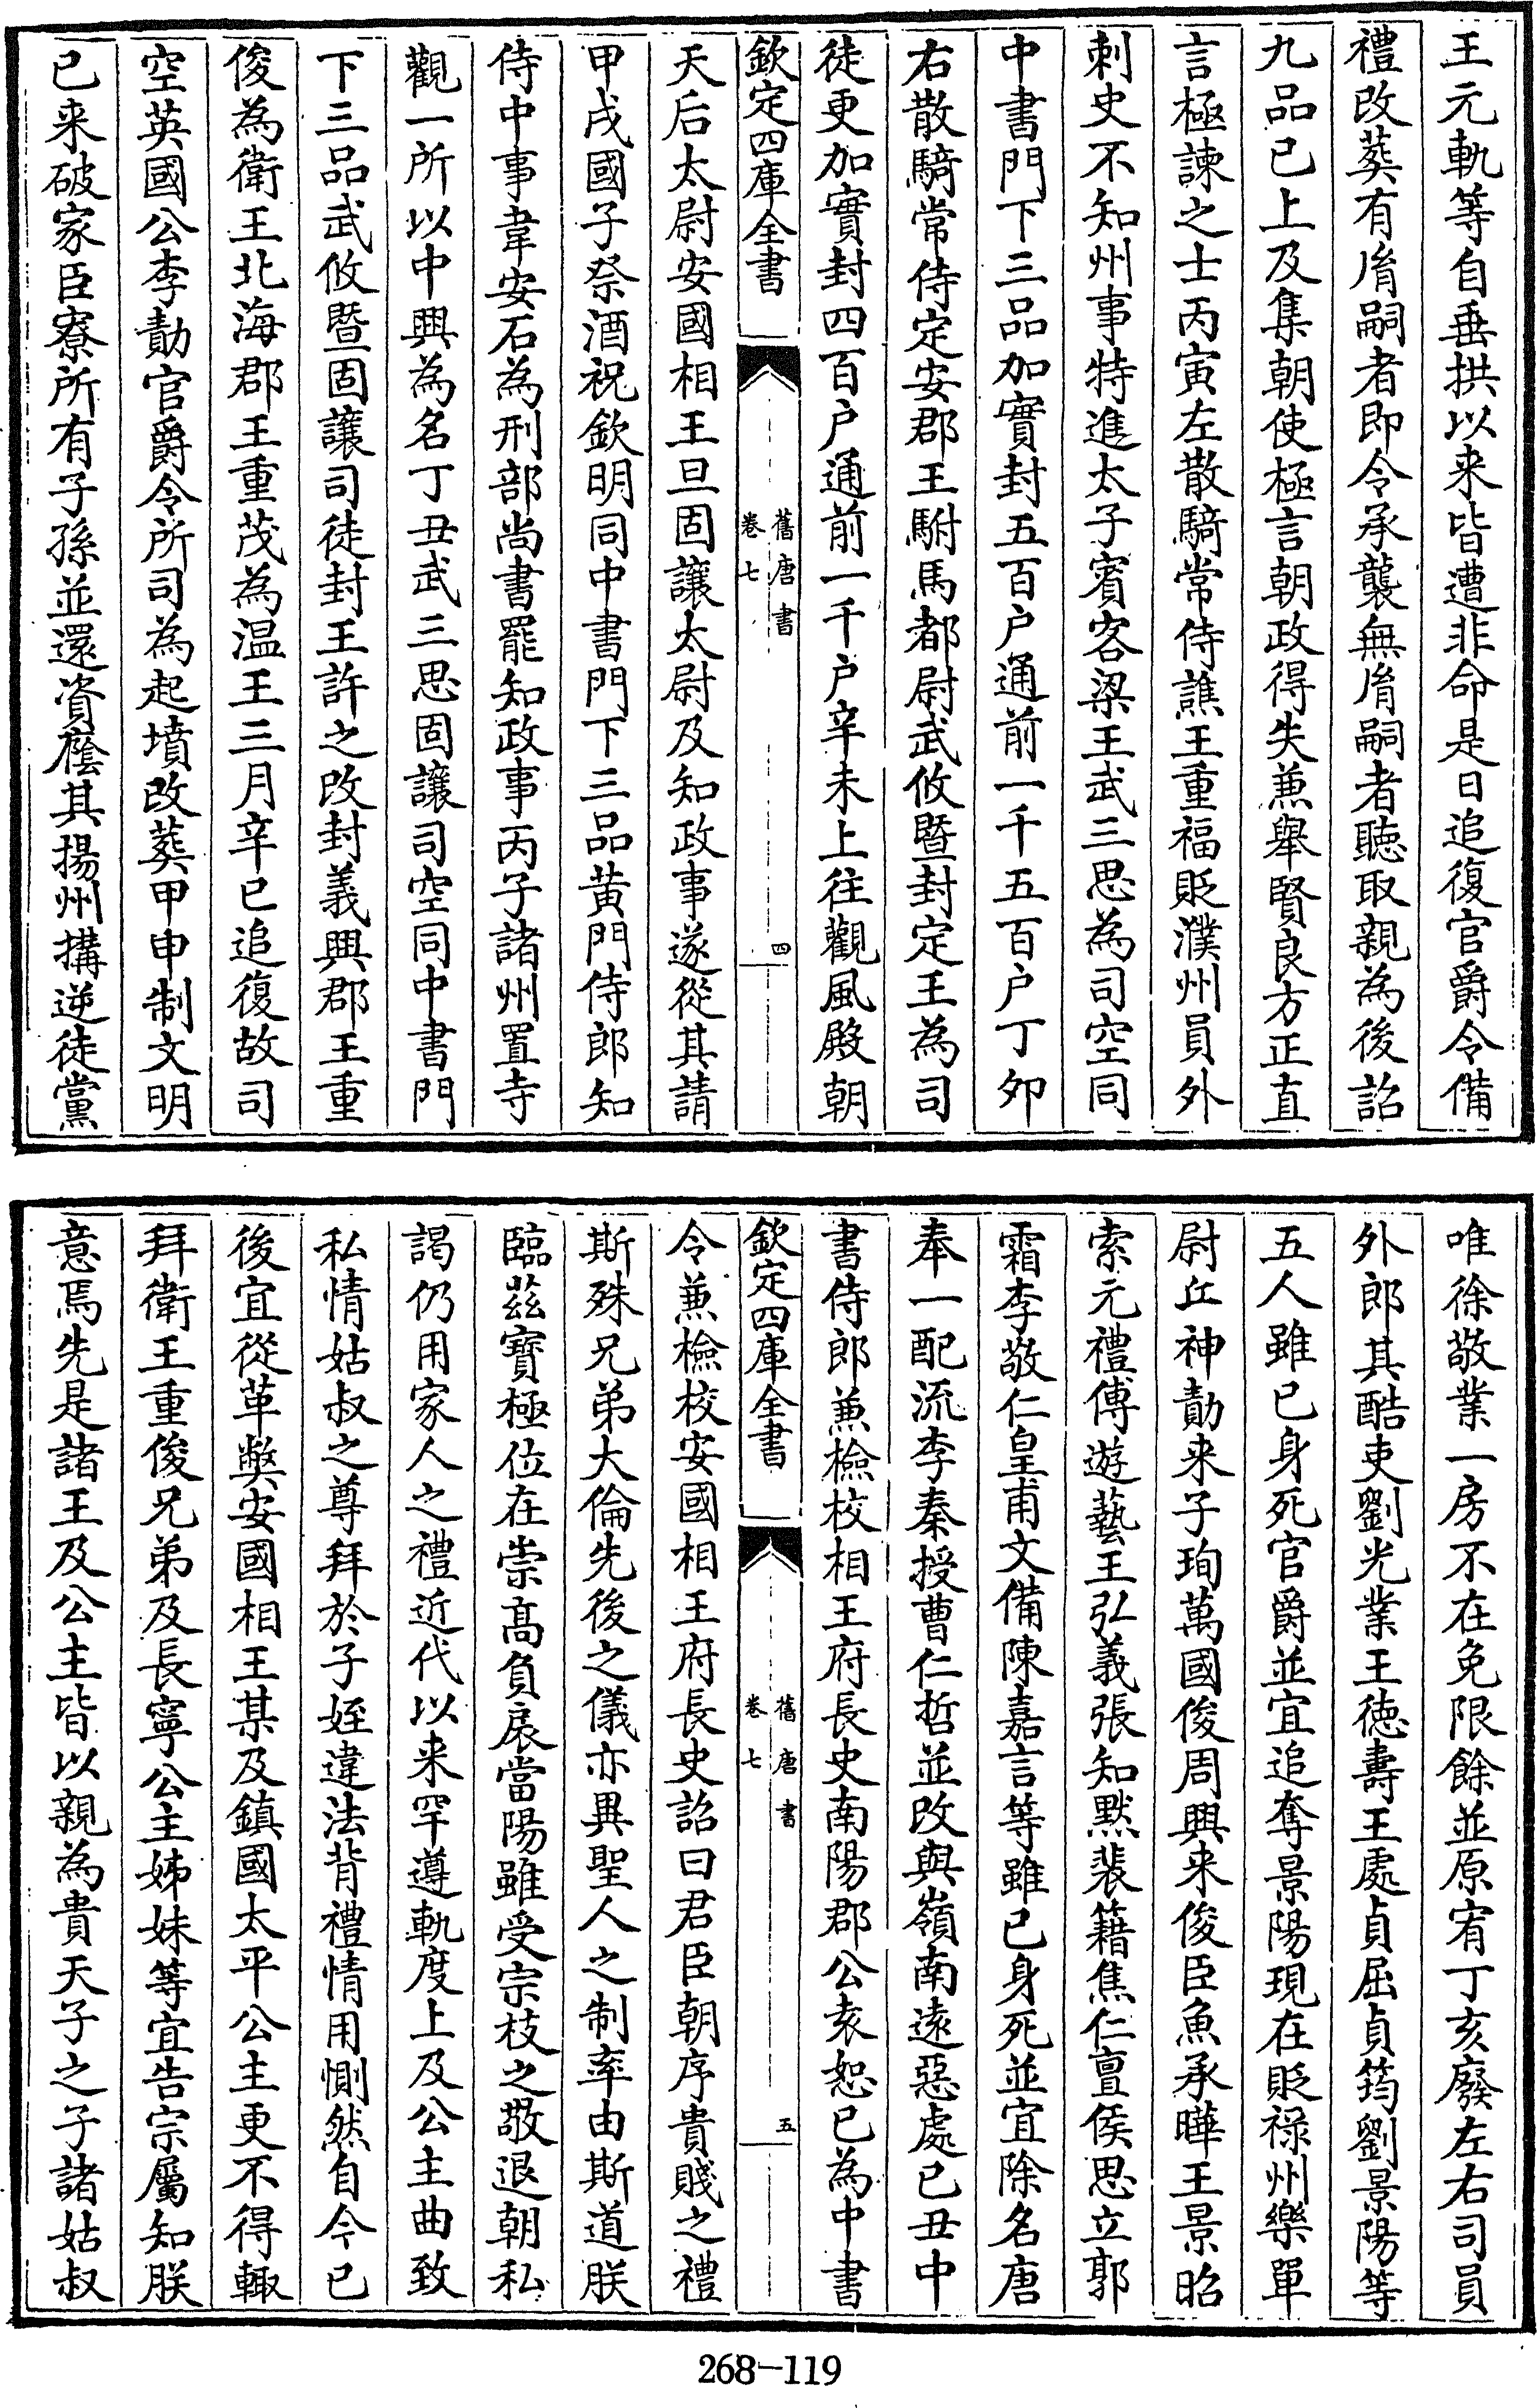 王元軌等自垂拱以来皆遭非命是日追復官爵令備
禮改葬有胤嗣者即令承襲無胤嗣者聽取親為後詔
九品已上及集朝使極言朝政得失兼舉賢良方正直
言極諫之士丙寅左散騎常侍譙王重福貶濮州員外
刺史不知州事特進太子賓客梁王武三思為司空同
中書門下三品加實封五百户通前一千五百户丁夘
右散騎常侍定安郡王駙馬都尉武攸暨封定王為司
徒更加實封四百户通前一千户辛未上往觀風殿朝
欽定四庫全書
舊唐書
卷七
四
天后太尉安國相王旦固讓太尉及知政事遂從其請
甲戌國子祭酒祝欽明同中書門下三品黄門侍郎知
侍中事韋安石為刑部尚書罷知政事丙子諸州置寺
觀一所以中興為名丁丑武三思固讓司空同中書門
下三品武攸暨固讓司徒封王許之改封義興郡王重
俊為衛王北海郡王重茂為温王三月辛巳追復故司
空英國公李勣官爵令所司為起墳改葬甲申制文明
已来破家臣寮所有子孫並還資廕其揚州搆逆徒黨
唯徐敬業一房不在免限餘並原宥丁亥廢左右司員
外郎其酷吏劉光業王徳壽王處貞屈貞筠劉景陽等
五人雖已身死官爵並宜追奪景陽現在貶禄州樂單
尉丘神勣来子珣萬國俊周興来俊臣魚承曄王景昭
索元禮傅遊藝王弘義張知黙裴籍焦仁亶侯思立郭
霜李敬仁皇甫文備陳嘉言等雖已身死並宜除名唐
奉一配流李秦授曹仁哲並改與嶺南遠惡處已丑中
書侍郎兼檢校相王府長史南陽郡公袁恕已為中書
欽定四庫全書
舊唐書
卷七
五
令兼檢校安國相王府長史詔曰君臣朝序貴賤之禮
斯殊兄弟大倫先後之儀亦異聖人之制率由斯道朕
臨兹寶極位在崇髙負扆當陽雖受宗枝之敬退朝私
謁仍用家人之禮近代以来罕遵軌度上及公主曲致
私情姑叔之尊拜於子姪違法背禮情用惻然自今已
後宜從革弊安國相王某及鎮國太平公主更不得輙
拜衛王重俊兄弟及長寧公主姊妹等宜告宗屬知朕
意焉先是諸王及公主皆以親為貴天子之子諸姑叔
268-119